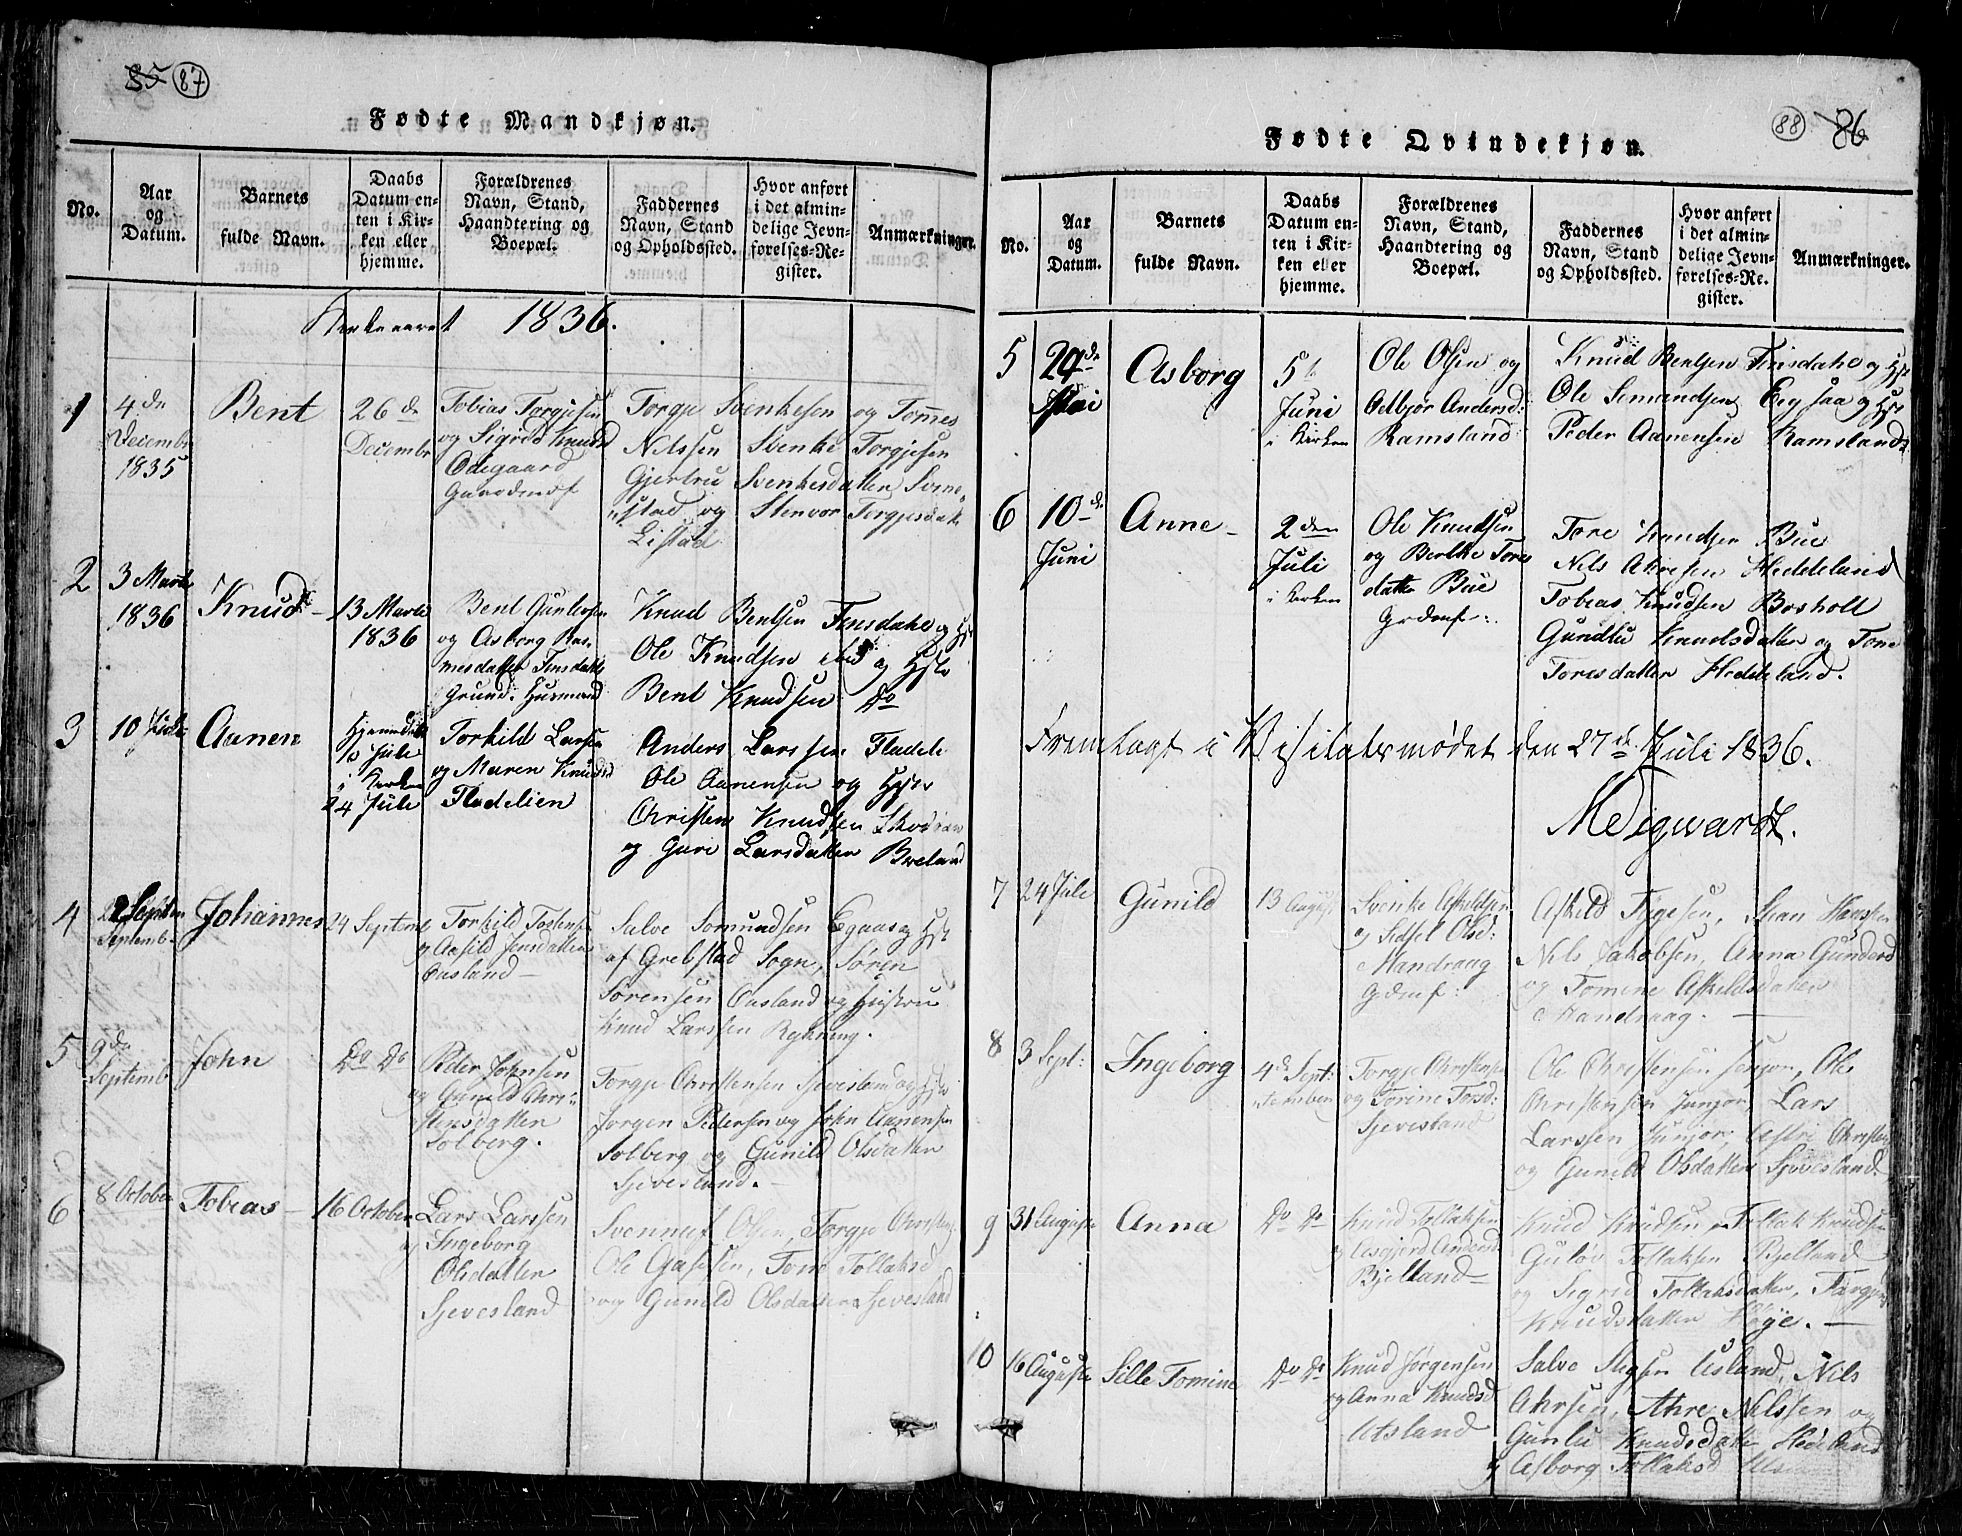 85 87
Fødte Mandkjøn.
No.
Aar
og
Datum.
Barnets
fulde Navn.
Daabs
Datum en-
ten i Kir-
ken eller
hjemme.
Forældrenes
Navn, Stand,
Haandtering og
Boepæl.
Faddernes
Navn, Stand
og Opholdssted.
Hvor anført
i det almin-
delige Jevn-
førelses-Re-
gister.
Anmærkninger.
Kirkeaaret 1836.
1
4de
Decembr
1835
Bent
26de
Decembr
Tobias Torgjesen
og Sigrid Knudsd
Ødegaard
Torgje Svenkesen og Tomes
Nilssen Svenke Torgjesen
Gjertru Svenkesdatter Svine-
stad og Stenvor Torgjesdatt
Listad
2
3 Marts
1836
Knud
13 Marts
1836
Bent Guntersen
og Asborg Ras-
musdatter Finsdahl
Grund. Husmand
Knud Bentsen Finsdahl og Hst
Ole Knudsen ibid og Hstr
Bent Knudsen Do
3
10 Juli
Aanen
Hjemmedøbt
10 Juli
i Kirken
24 Juli
Torkild Larsen
og Maren Knudsd
Fladelien
Anders Larssen Fladeli
Ole Aanensen og Hstr
Christen Knudsen
og Guri Larsdatter Breland
4
Septemb
Johannes
24 Septemb
Torkild Tostensen
og Aasild Jensdatter
Ousland
Salve Somundsen Egaas og Hst
af Grebstad Sogn, Søren
Sørensen Ousland og Hustru
Knud Larssen Rykning.
5
9de
Septemb
John
Do Do
Peder Johnsen
og Gunild Chri-
stensdatter
Solberg.
Torgje Christensen Sjevesland og Hstr
Jørgen Pedersen og John Aanensen
Solberg og Gunild Olsdatter
Sjevesland.
6
8 October
Tobias
16 October
Lars Larssen
og Ingeborg
Olsdatter
Sjevesland
Svennuf Olsen, Torgje Christens
Ole Gasessen, Tone Tollaksd
og Gunild Olsdatter Sjevesland
88 86
Fødte Qvindekjøn.
No.
Aar
og
Datum.
Barnets
fulde Navn.
Daabs
Datum en-
ten i Kir-
ken eller
hjemme.
Forældrenes
Navn, Stand,
Haandtering og
Boepæl.
Faddernes
Navn, Stand
og Opholdssted.
Hvor anført
i det almin-
delige Jevn-
førelses-Re-
gister.
Anmærkninger.
5
29de
Mai
Asborg
5t
Juni
i Kirken
Ole Olsen og
Adbjør Andersd:
Ramsland
Knud Bentsen Finsdahl og Hst
Ole Semundsen Eeg og Hst
Peder Aanensen Ramsland
6
10de
Juni
Anne
2den
Juli
i Kirken
Ole Knudsen
og Berthe Tores
datter Bue
Tore Knudsen Bue
Nils Ahresen Heddeland
Tobias Knudsen Bosholt
Gundlu Knudsdatter og Tone
Toresdatter Heddeland.
Fremlagt i Visitatsmødet den 27de Juli 1836.
MSigwardt.
7
24 Juli
Gunild
13 August
Svenke Askildsen
og Sidsel Olsd:
Mandraag
Askild Tygesen, Stian Hanssen
Nils Jakobsen, Anna Gunderd
og Tomine Askildsdatter
Mandraag.
8
3 Sept:
Ingeborg
4de Sept:
Torgje Christensen
og Torine Torsd:
Sjevesland
Ole Christensen senjor, Ole
Christensen Junjor, Lars
Larssen Junjor, Astri Christens
og Gunild Olsdatter Sjevesland
9
31 August
Anna
Do Do
Knud Tollaksen
og Asgjerd Andersd
Bjelland
Knud Knudsen, Tollak Knudsen
Guløv Tollaksen Bjelland
og Sigrid Tollaksdatter, Torgjer
Knudsdatter Høye.
10
16 August
Sille Tomine
Do Do
Knud Jørgensen
og Anna Knudsd
Utsland
Salve Stigsen Usland, Nils
Ahrsen, Ahre Nilssen og
Gunlu Knudsdatt Hedeland
og Asborg Tollaksd